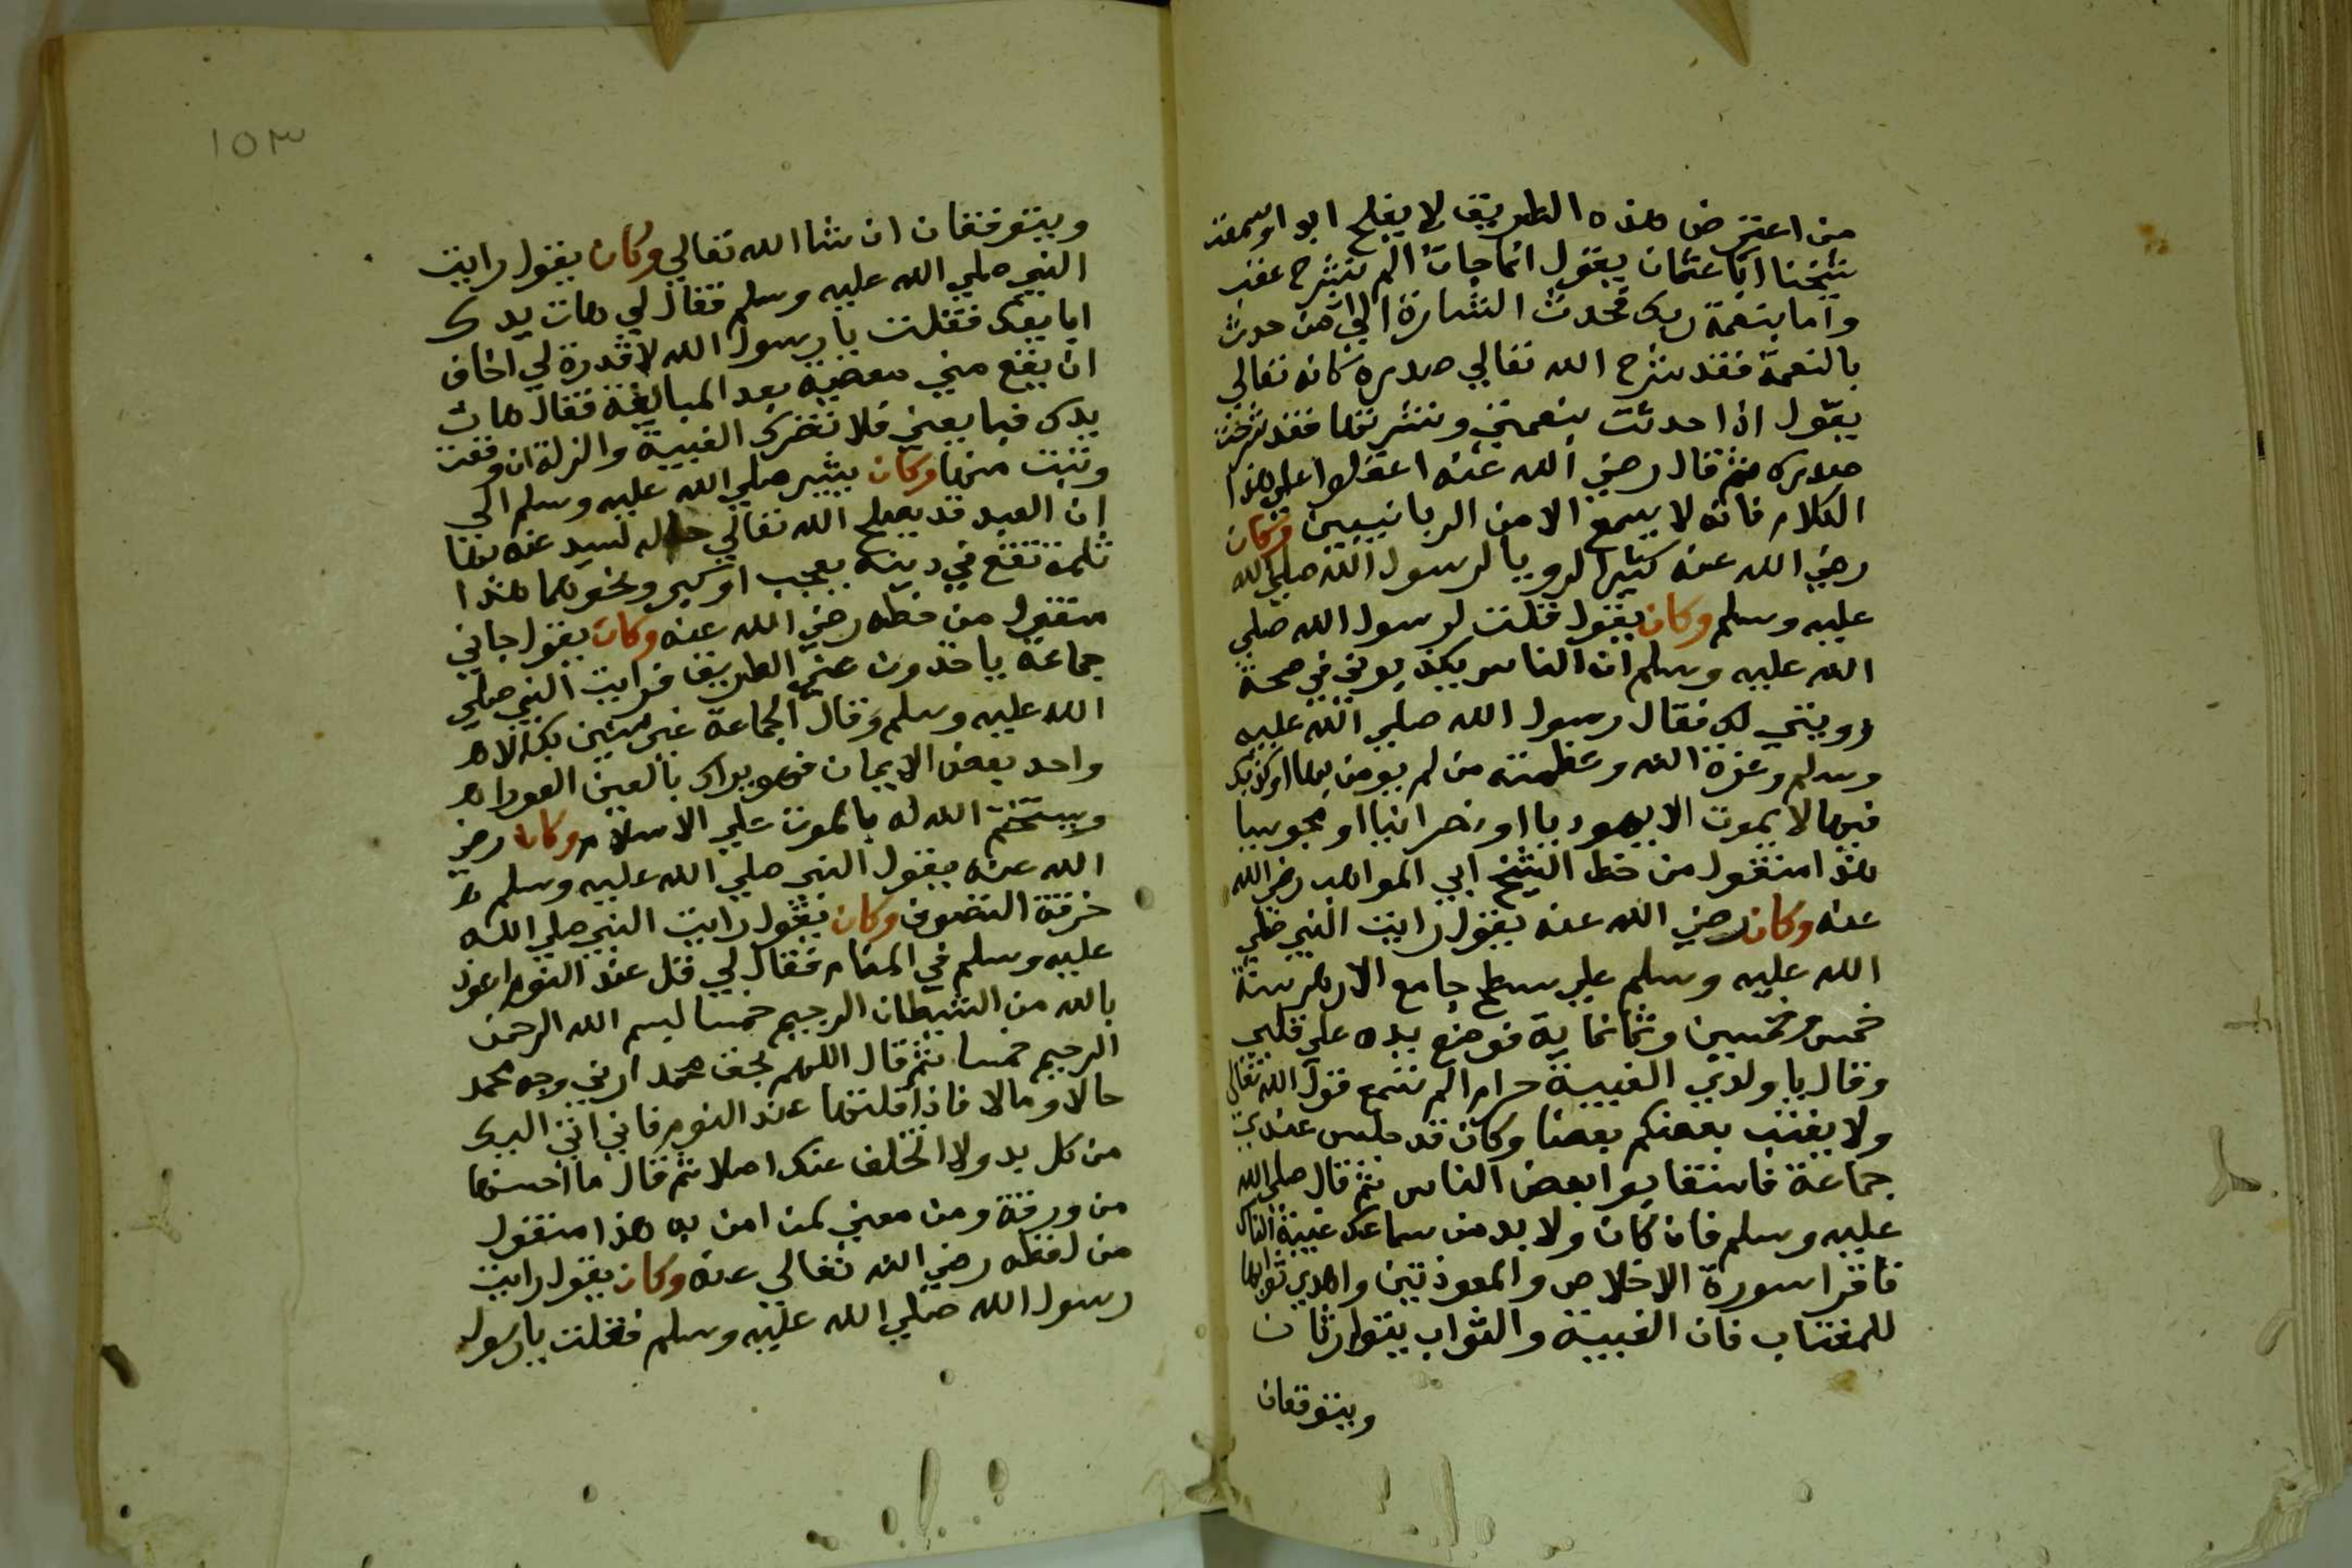 من اعترض هذه الطريق لا يفلح ابدا وسمعت
شيخنا ابا عثمان يقول انما جات الم نشرح عقب
واما بنعمة ربك فحدث اشارة الي ان من حدث
بالنعمة فقد شرح الله تعالي صدره كانه تعالي
يقول اذا حدثت بنعمتي ونشرتها فقد شرحت
صدرك ثم قال رضي الله عنه اعقلوا علي هذا
الكلام فانه لا يسمع الا من الربانيين وكان
رضي الله عنه كثير الرويا لرسول الله صلي الله
عليه وسلم وكان يقول قلت لرسول الله صلي
الله عليه وسلم ان الناس يكذبوني في صحة
رويتي لك فقال رسول الله صلي الله عليه
وسلم وعزة الله وعظمته من لم يومن بها او كذبك
فيها لا يموت الا يهوديا او نصرانيا او مجوسيا
هذا منقول من خط الشيخ ابي المواهب رضي الله
عنه وكان رضي الله عنه يقول رايت النبي صلي
الله عليه وسلم علي سطح جامع الازهر سنة
خمس وخمسين وثمانماية فوضع يده علي قلبي
وقال يا ولدي الغيبة حرام الم تسمع قول الله تعالي
ولا يغتب بعضكم بعضا وكان قد جلس عندي
جماعة فاستغابوا بعض الناس ثم قال صلي الله
عليه وسلم فان كان ولا بد من سماعك غيبة الناس
فاقرا سورة الاخلاص والمعوذتين واهدي ثوابها
للمغتاب فان الغيبة والثواب يتوارثان
ويتوقفان
١٥٣
ويتوقفان ان شا الله تعالي وكان يقول رايت
النبي صلي الله عليه وسلم فقال لي هات يدك
ابايعك فقلت يا رسول الله لا قدرة لي اخاف
ان يقع مني معصية بعد المبايعة فقال هات
يدك فبايعني فلا تضرك الغيبة والزلة ان وقعت
وتبت منها وكان يشير صلي الله عليه وسلم الي
ان العبد قد يصلح الله تعالي حاله لسيد عنه بها
ثلمة تقع في دينه بعجب او كبر ونحوهما هذا
منقول من خطه رضي الله عنه وكان يقول جاني
جماعة ياخذون عني الطريق فرايت النبي صلي
الله عليه وسلم وقال الجماعة غير مومنين بك الا
واحد بعض الايمان فهو يراك بالعين العورا
ويستختم الله له بالموت علي الاسلام وكان رضي
الله عنه يقول النبي صلي الله عليه وسلم
خرقة التصوف وكان يقول رايت النبي صلي الله
عليه وسلم في المنام فقال لي قل عند النوم اعوذ
بالله من الشيطان الرجيم خمسا بسم الله الرحمن
الرحيم خمسا ثم قال اللهم بحق محمد ارني وجه محمد
حالا ومالا فاذا قلتها عند النوم فاني اتي اليك
من كل بد ولا اتخلف عنك اصلا ثم قال ما احسنها
من ورقة ومن معني لمن امن به هذا منقول
من لفظه رضي الله تعالي عنه وكان يقول رايت
رسول الله صلي الله عليه وسلم فقلت يا رسول